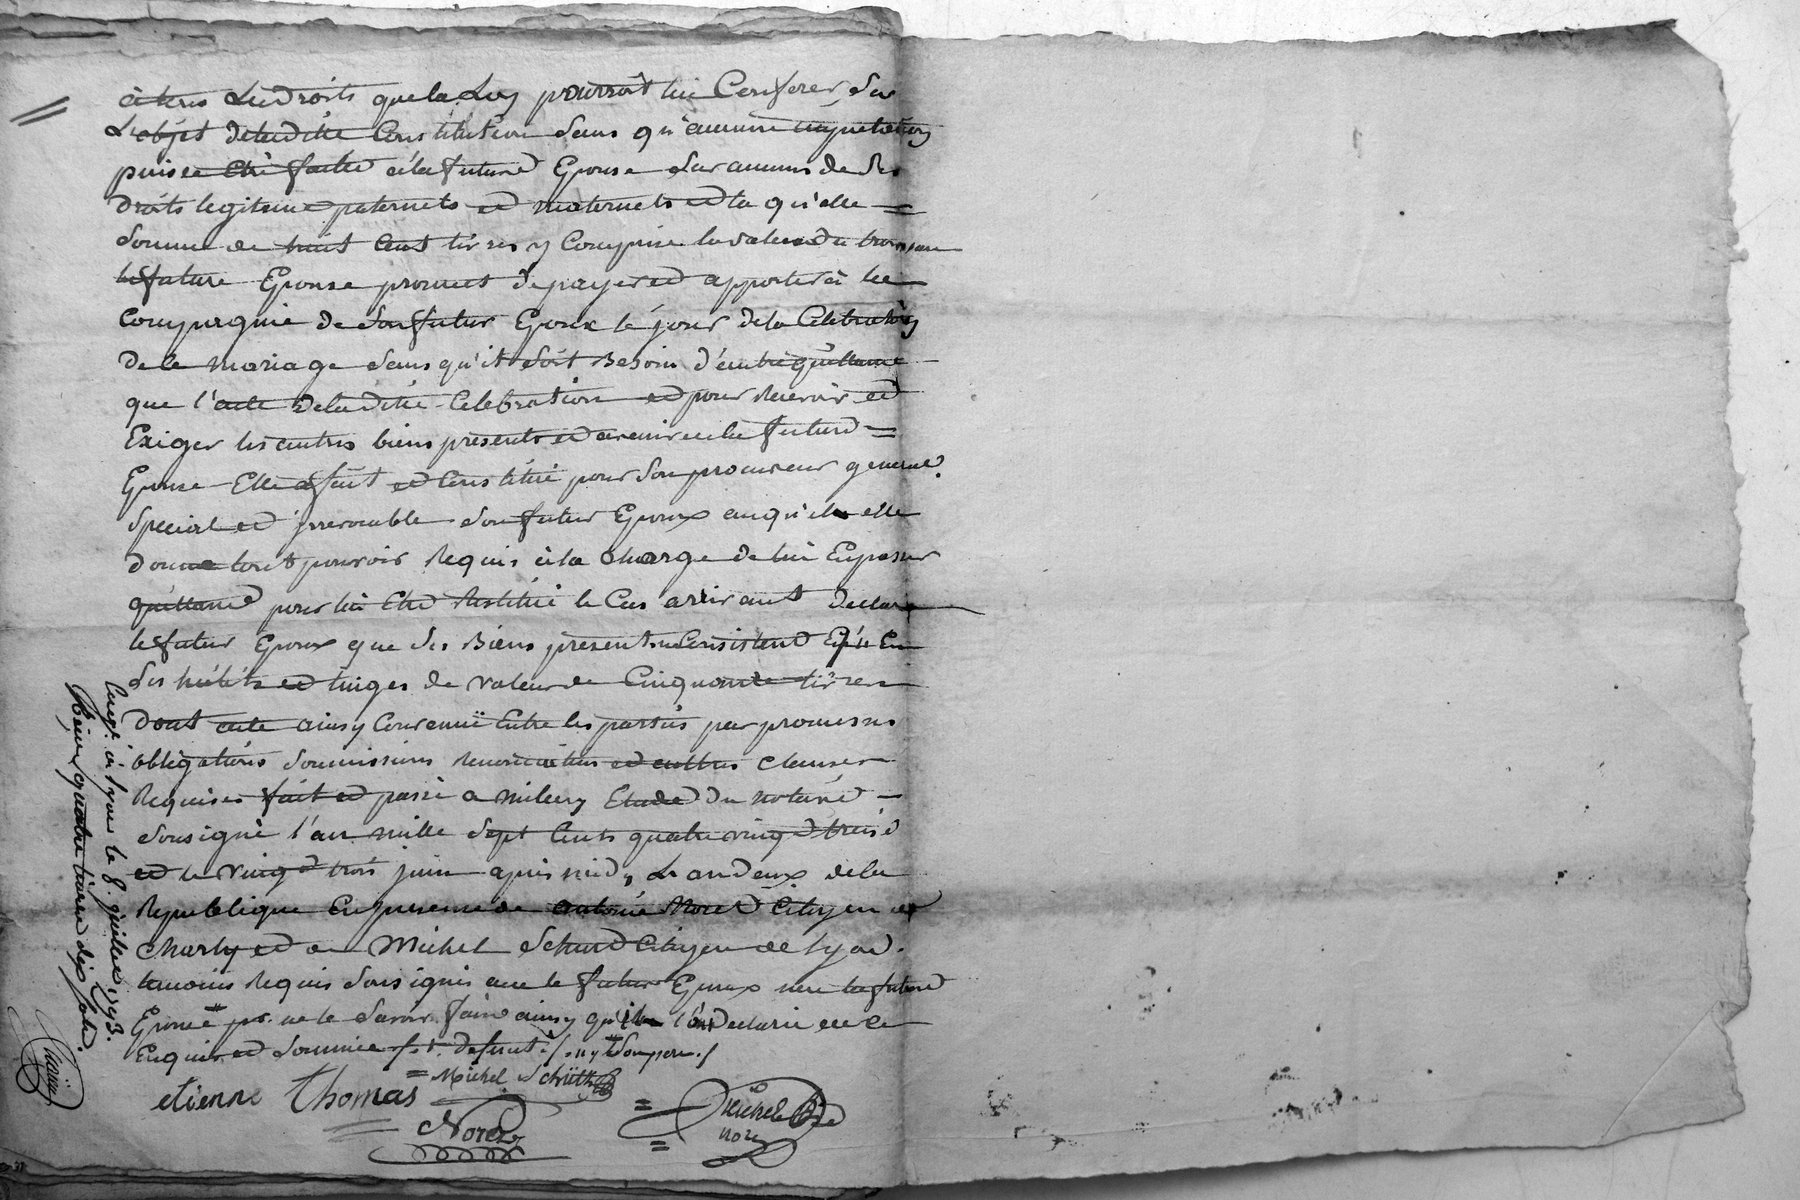 à tous les droits que la Loy pourroit lui Conferer, Sur
L'objet de laditte Constitution Sans qu'aucune imputation
puisse Etre faitte à la future Epouse Sur aucuns de Ses
droits legitimes paternels et maternels et la qu'elle =
Somme de huit Cent livres y Comprise la valeur du trousseau
la future Epouse promet de payer et apporter à la
Compagnie de Son futur Epoux le jour de la Celebration
de le mariage Sans qu'il Soit Besoin d'autre quittance
que l'acte de laditte Celebration et pour Recevoir et
Exiger les autres biens presents et avenir de la future =
Epouse Elle a fait et Constitué pour Son procureur general
Special et irrevocable Son futur Epoux auquel elle
donne tout pouvoir Requis à la charge de lui En passer
quittance pour lui Etre Restitué le Cas arrivant declare
le futur Epoux que Ses Biens presents Consistent En
Ses habits et linges de valeur de Cinquante livres
Dont acte ainsy Convenu Entre les parties par promesses
obligations Soumissions Renonciations et autres Clauses
Requises fait et passé a millery Etude du notaire
Sousigné l'an mille Sept Cents quatre vingt treize
et le vingt trois juin apres midy L'an deux de la
Republique En presence de antoine Noré Citoyen de
Charly et de Michel Citoyen de Lyon.
temoins Requis Sousignés avec le futur Epoux non la future
Epouse pr. ne le Savoir faire ainsy qu'ils l'ont declaré de ce
Enquis et Sommée
etienne Thomas
= Michel Schütt
Noré
noré
Enregt. à Lyon le 8. juillet 1793.
Reçu quatre livres dix sols.